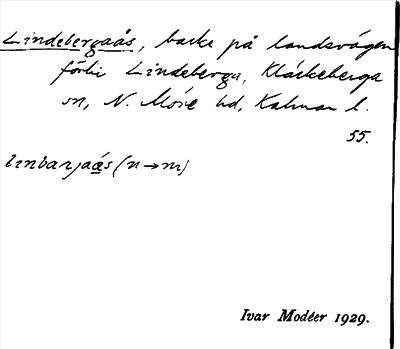 Lindebergaås, backe på landsvägen
förbi Lindeberga, Kläckeberga
sn, N. Möre hd, Kalmar l.
55.
linbarjaás (n→m)
Ivar Modéer 1929.